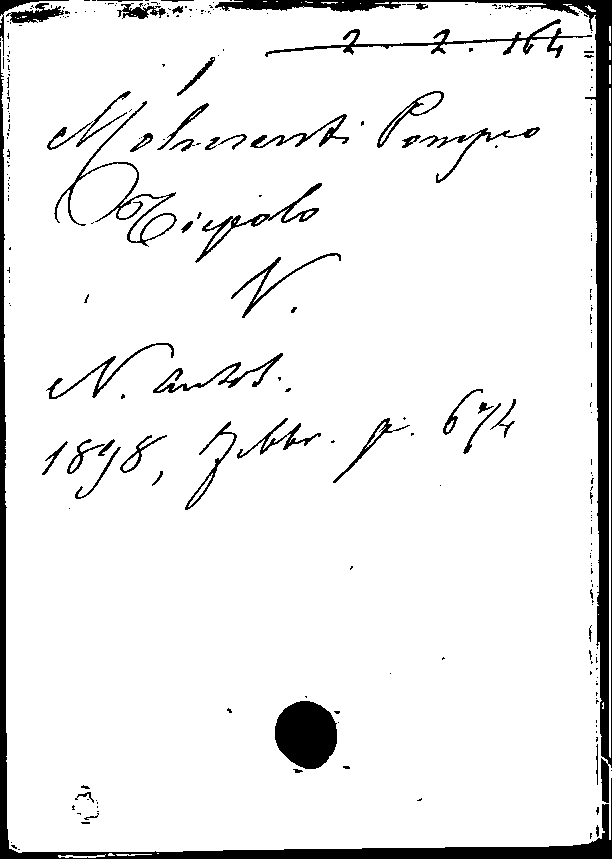 2. 2. 164
Molmenti Pompeo
Tiepolo
N.
N. Antol.
1898, Febbr. p. 674